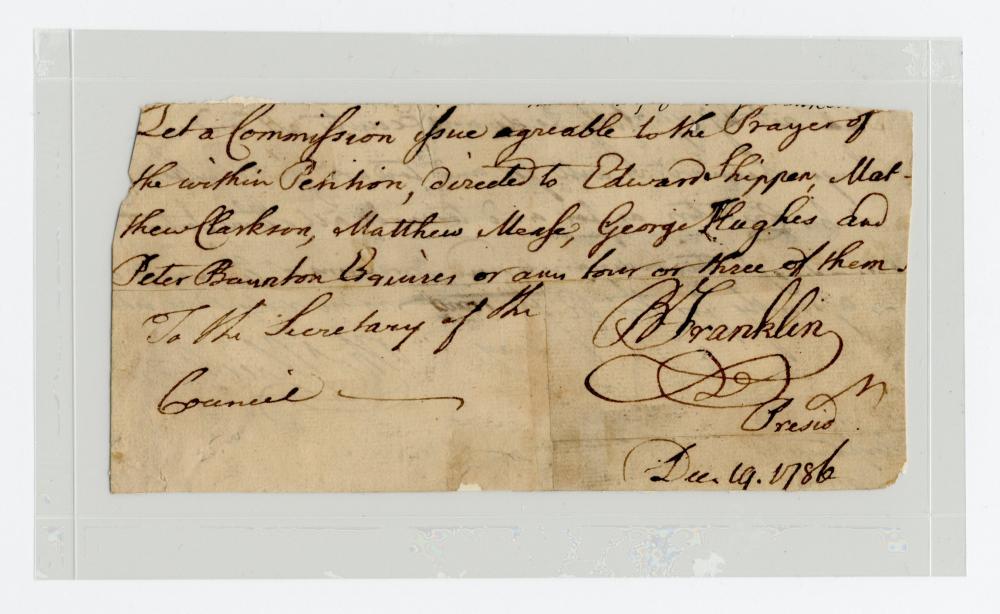 Let a Commission issue agreable to the Prayer of
the within Petition, directed to Edward Shippen, Mat-
thew Clarkson, Matthew Mease, George Hughes and
Peter Baunton Esquires or any four or three of them.
To the Secretary of the
Council
B Franklin
Presid
Dec. 19. 1786